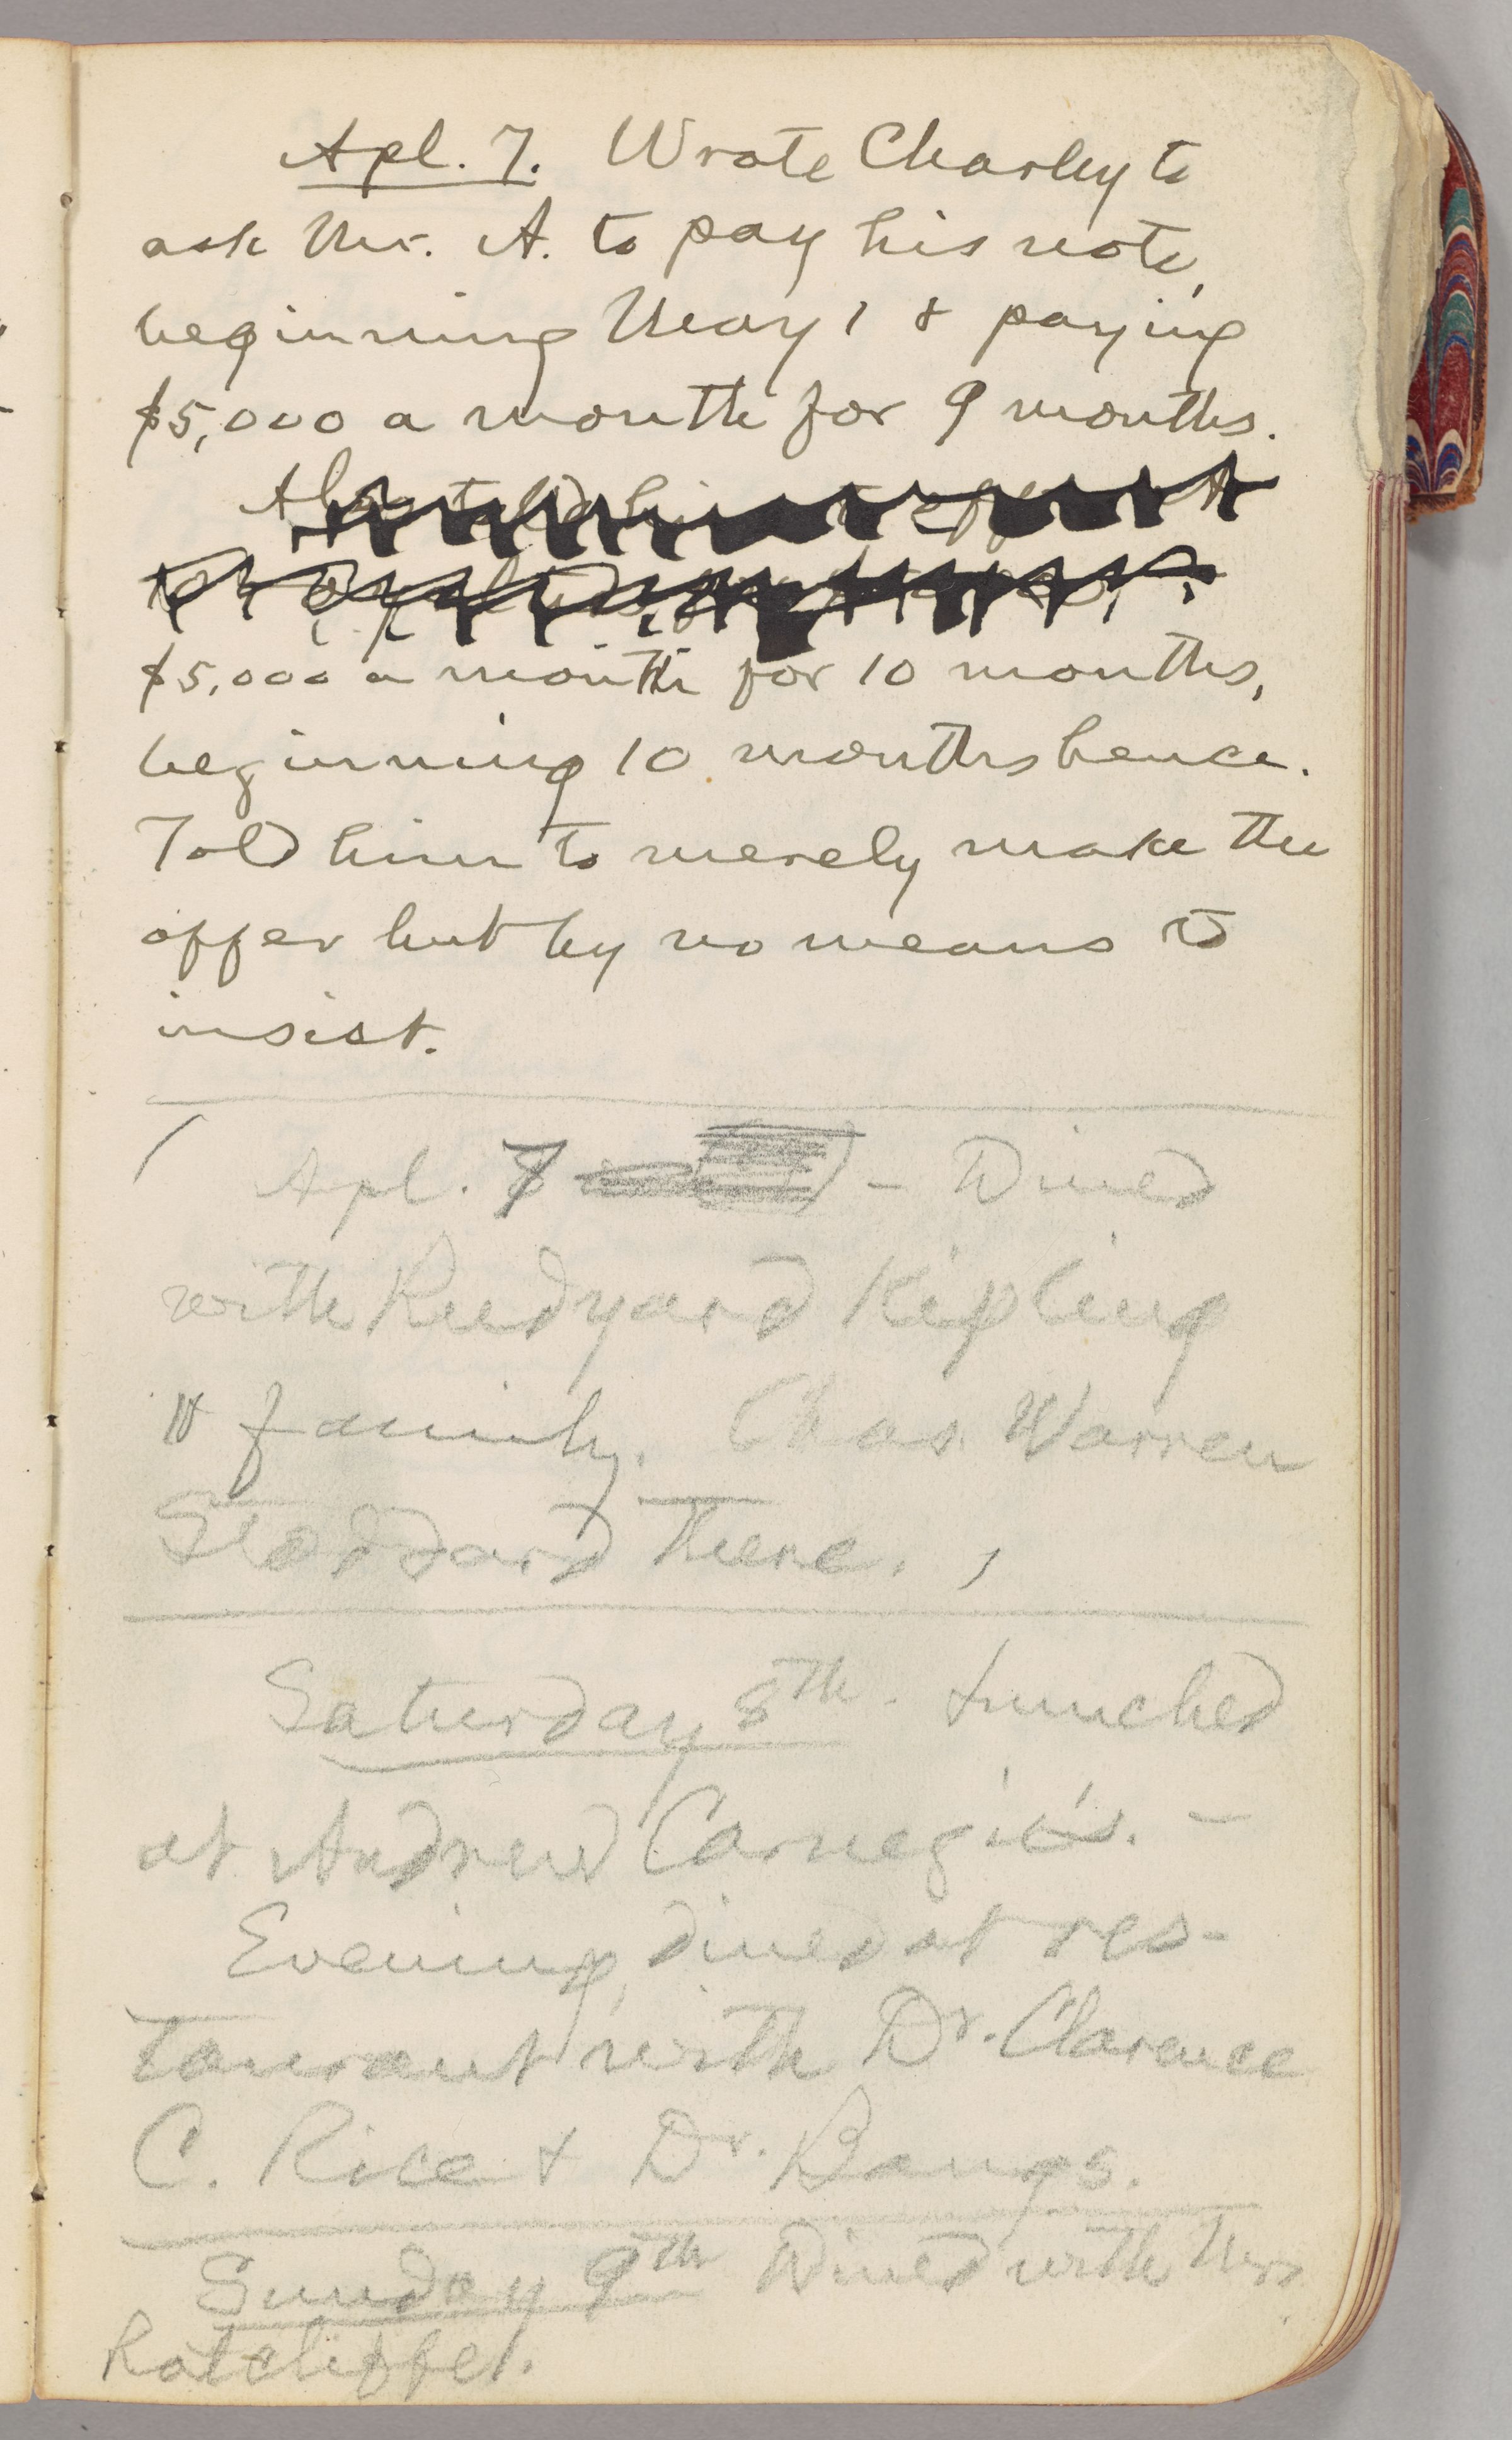 Apl. 7. Wrote Charley to
ask Mr. A. to pay his note,
beginning May 1 & paying
$5,000 a month for 9 months.
Also told him to offer
$5,000 a month for 10 months,
beginning 10 months hence.
Told him to merely make the
offer but by no means to
insist.
Apl. 7 — Dined
with Rudyard Kipling
& family. Chas. Warren
Stoddard there.
Saturday 8th. Lunched
at Andrew Carnegie's. —
Evening, dined at res-
taurant with Dr. Clarence
C. Rice & Dr. Bangs.
Sunday 9th Dined with Mrs
Ratcliffe.